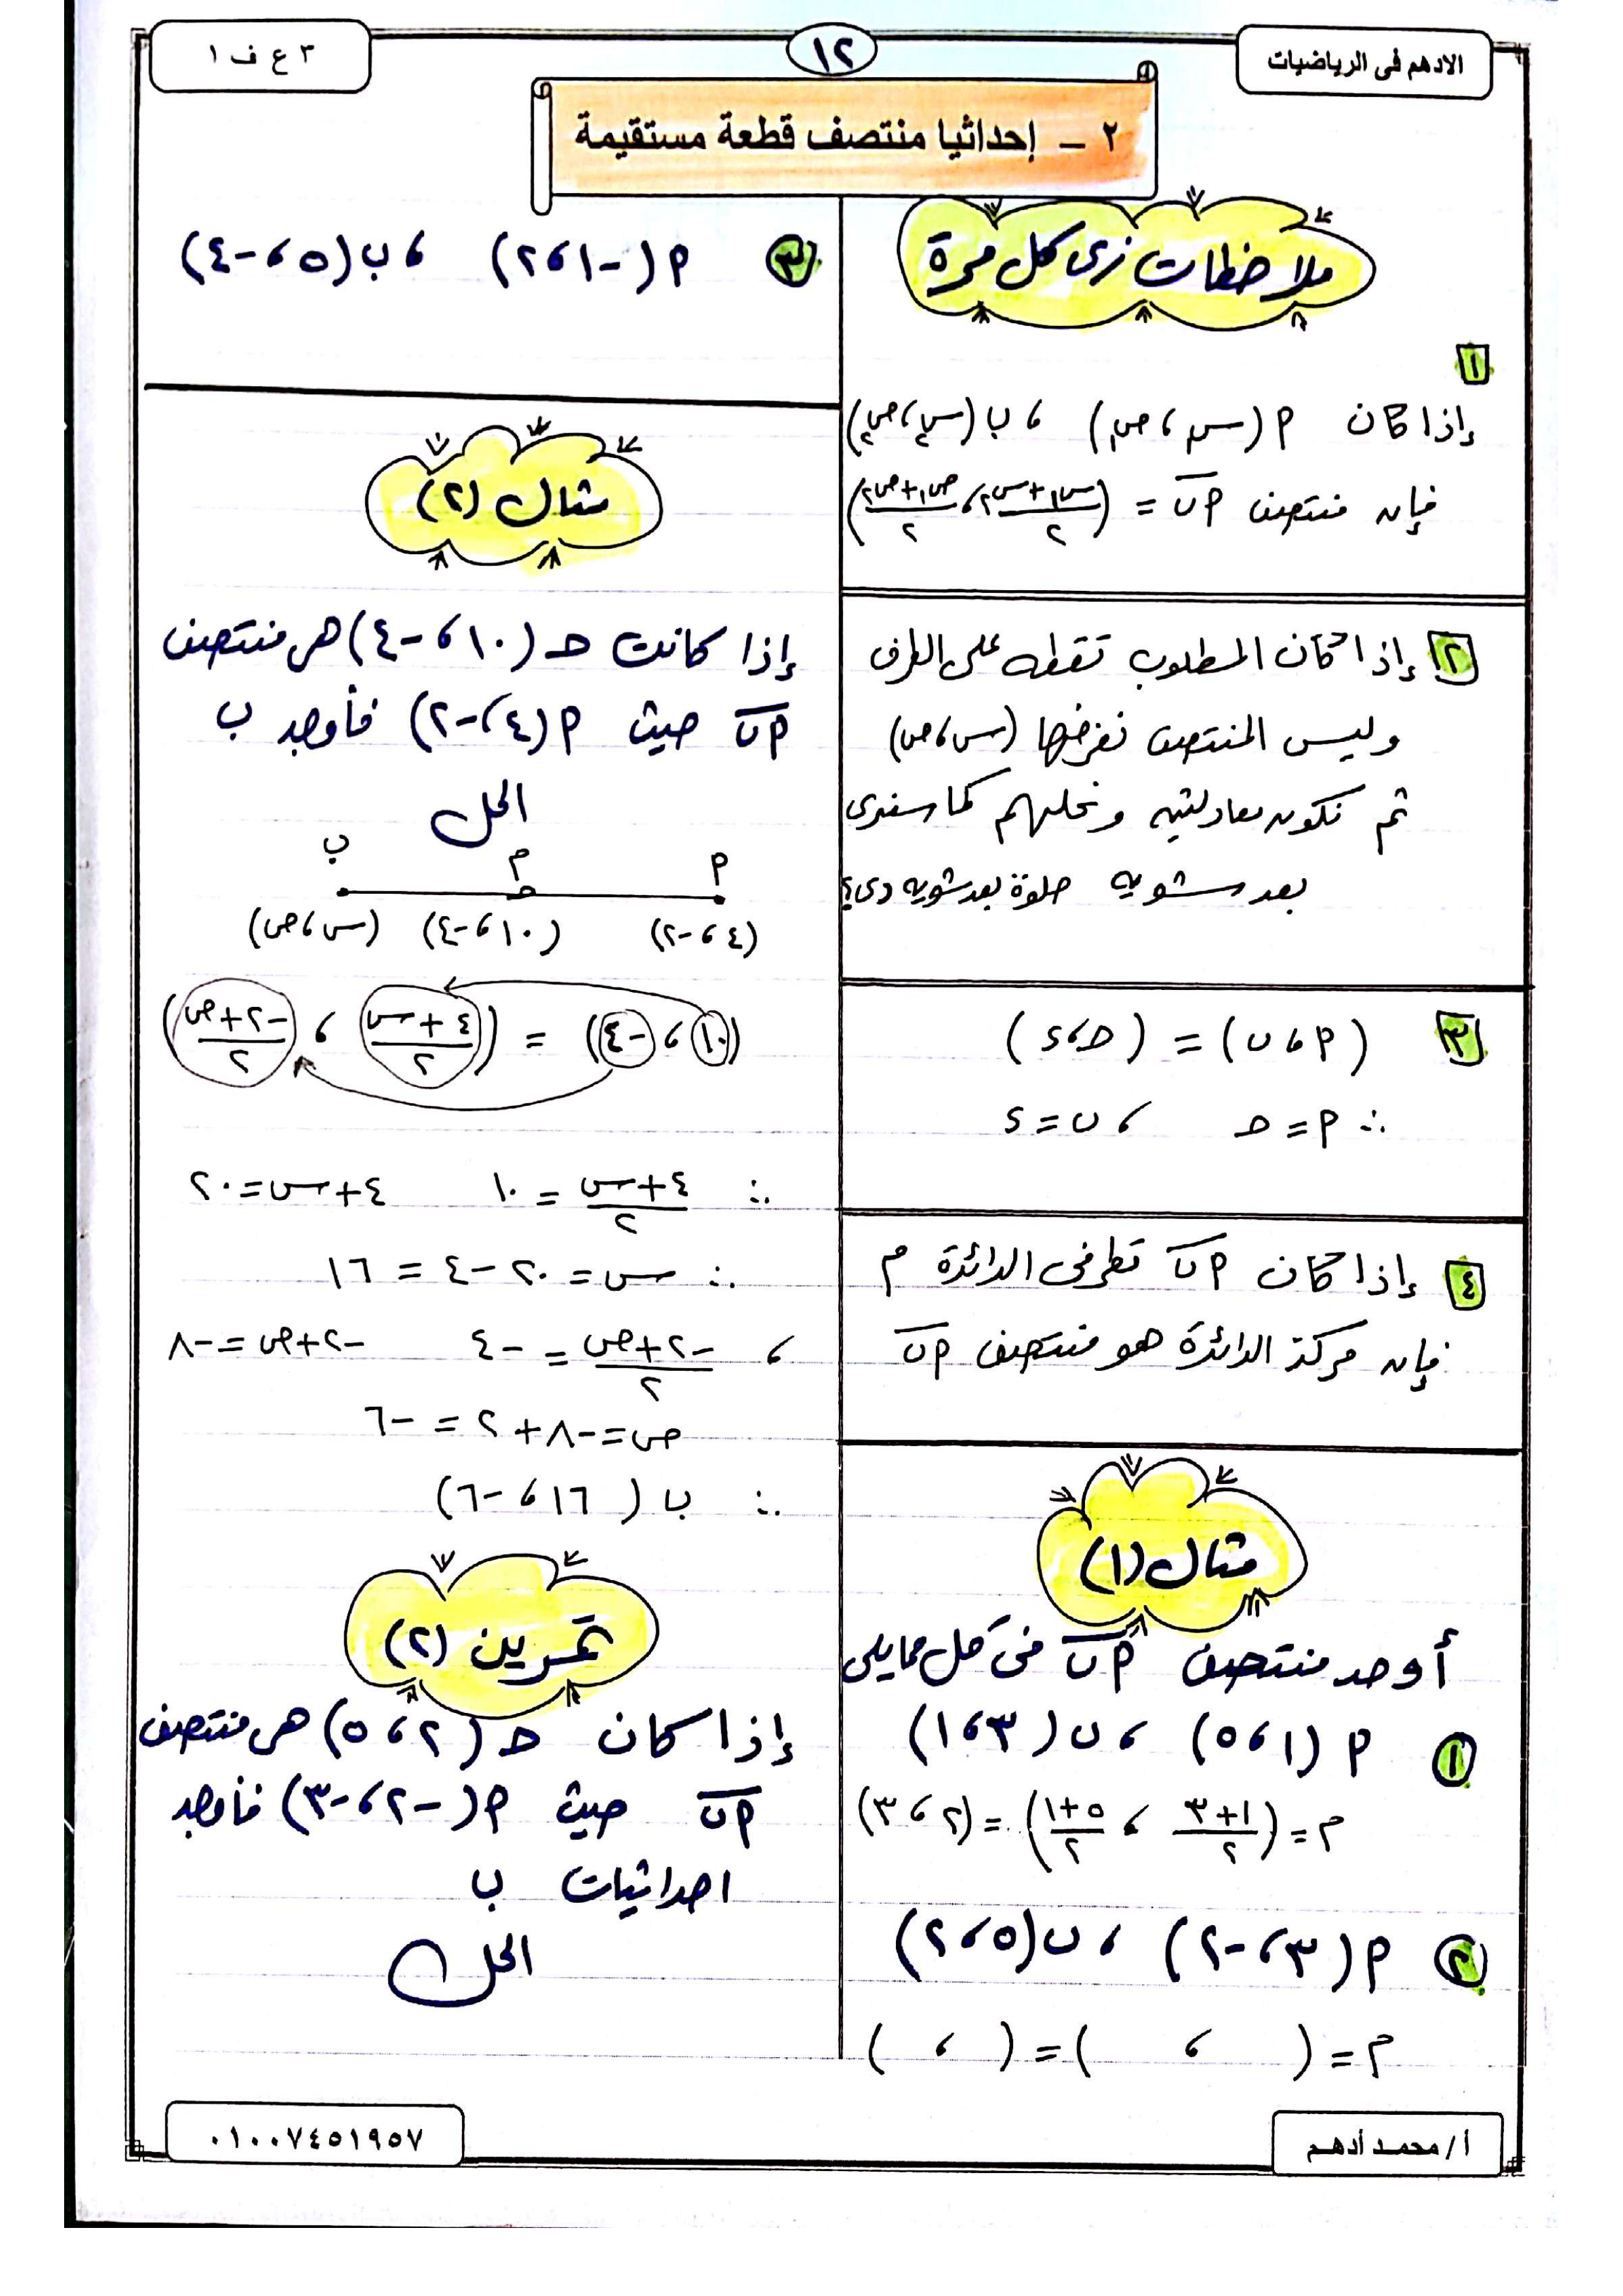 الادهم فى الرياضيات
١٢
٣ ع ف ١
٢ – إحداثيا منتصف قطعة مستقيمة
ملاحظات زى كل مرة
١
إذا كان P (س١ ، ص١) ، ب (س٢ ، ص٢)
فإن منتصف P ب = (س١ + س٢ / ٢ ، ص١ + ص٢ / ٢)
٢ إذا كان المطلوب نقطه على الطرف
وليس المنتصف نفرضها (س ، ص)
ثم نكون معادلتين ونحلهم كما سنرى
بعد شويه حلوة بعد شويه دى؟
٣ (P ، ب) = (حـ ، ء)
∴ P = حـ ، ب = ء
٤ إذا كان P ب قطر فى الدائرة م
فإن مركز الدائرة هو منتصف P ب
مثال (١)
أوجد منتصف P ب فى كل مما يلى
١ P (١ ، ٥) ، ب (٣ ، ١)
م = (١+٣ / ٢ ، ٥+١ / ٢) = (٢ ، ٣)
٢ P (٣ ، -٢) ، ب (٥ ، ٢)
م = ( ، ) = ( ، )
٣ P (-١ ، ٢) ، ب (٥ ، -٤)
مثال (٢)
إذا كانت حـ (١٠ ، -٤) هى منتصف
P ب حيث P (٤ ، -٢) فأوجد ب
الحل
P م ب
حـ
(٤ ، -٢) (١٠ ، -٤) (س ، ص)
(١٠ ، -٤) = (٤ + س / ٢ ، -٢ + ص / ٢)
∴ ٤ + س / ٢ = ١٠ ٤ + س = ٢٠
∴ س = ٢٠ - ٤ = ١٦
، -٢ + ص / ٢ = -٤ -٢ + ص = -٨
ص = -٨ + ٢ = -٦
∴ ب (١٦ ، -٦)
تمرين (٢)
إذا كان حـ (٢ ، ٥) هى منتصف
P ب حيث P (-٢ ، -٣) فأوجد
احداثيات ب
الحل
أ / محمـد أدهـم
٠١٠٠٧٤٥١٩٥٧